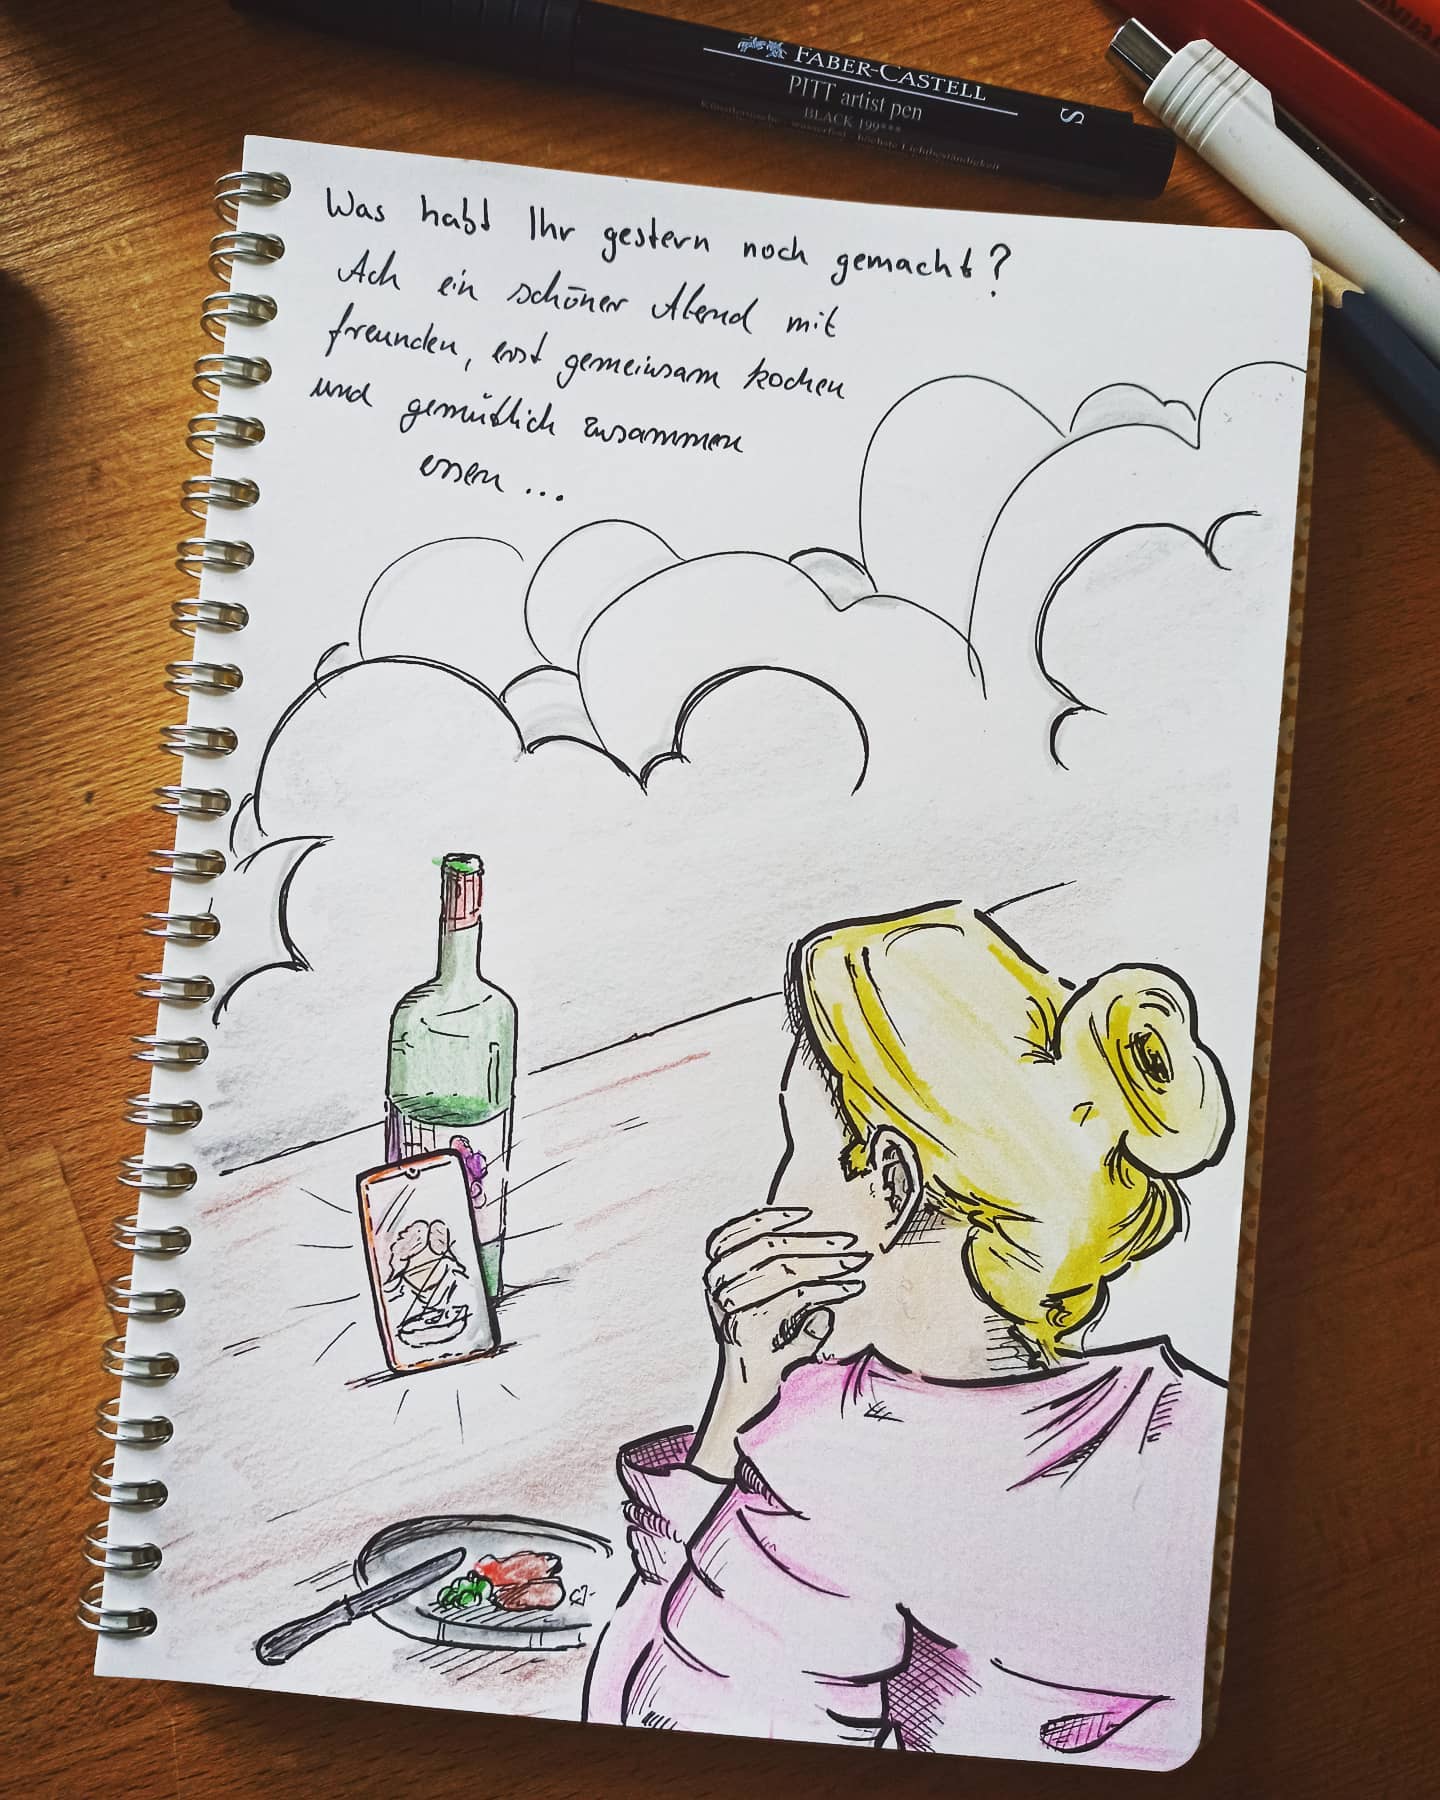 FABER-CASTELL
PITT artist pen
BLACK 199***
S
Was habt Ihr gestern noch gemacht?
Ach ein schöner Abend mit
freunden, erst gemeinsam kochen
und gemütlich zusammen
essen ...